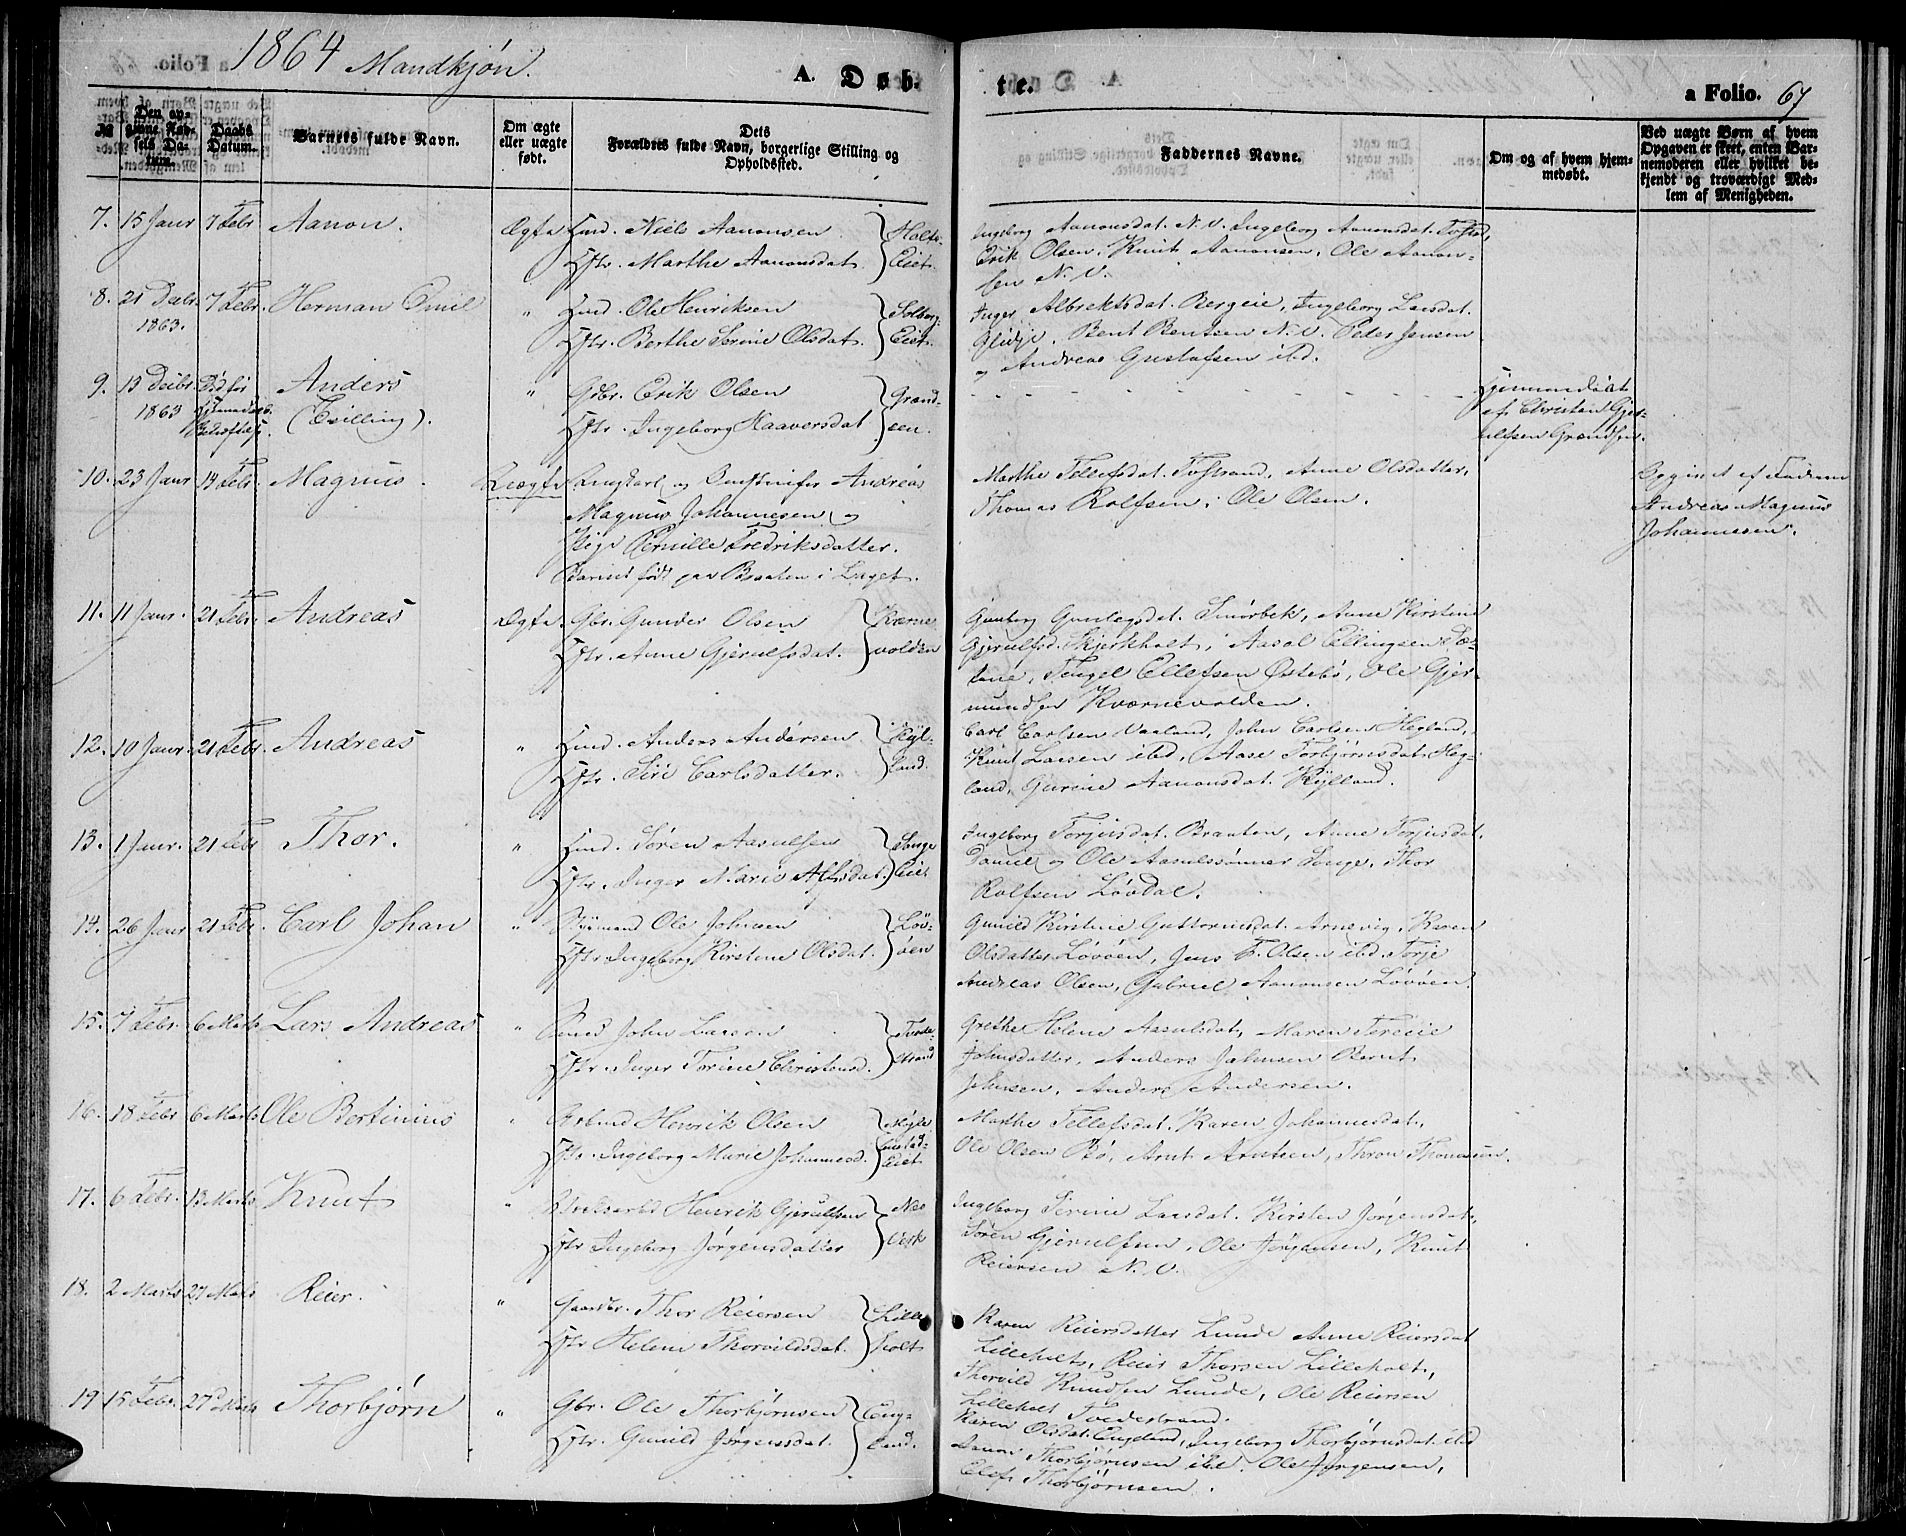 1864 Mandkjøn.
A. Døb-
te.
a Folio. 67
No
Den opgivne Fødsels Datum.
Daabs Datum.
Barnets fulde Navn.
Om ægte eller uægte født.
Dets Forældres fulde Navn, borgerlige Stilling og Opholdssted.
Faddernes Navne.
Om og af hvem hjemmedøbt.
Ved uægte Børn af hvem Opgaven er skeet, enten Barnemoderen eller hvilket bekjendt og troværdigt Medlem af Menigheden.
7. 15 Janr 7 Febr Aanon. Ægte Hmd. Niels Aanonsen Holte-
Hstr. Marthe Aanonsdat. Eiet.
Ingeborg Aanonsdat. N.V. Ingeborg Aanonsdat.
Erik Olsen, Knut Aanonsen, Ole Aanon-
sen N.V.
8. 21 Decbr 7 Febr. Herman Emil " Hmd. Ole Henriksen Solberg-
1863. Hstr. Berthe Serine Olsdat. Eiet.
Inger Albrektsdat. Bergeie, Ingeborg Larsdat.
Bent Bentsen N.V. Peder Jensen
og Andreas Gustafsen ibd.
9. 13 Decbr. Anders " Gbr. Erik Olsen Grønd-
1863 (Tvilling). Hstr. Ingeborg Haaversdat. een.
Hjemmedøbt
af Christen Gjer-
ulfsen
10. 23 Janr 14 Febr. Magnus. Uægte Ungkarl og Andreas
Magnus Johannesen og
Pige Pernille Fredriksdatter.
Barnet født paa Braaten i Laget.
Marthe Tellefsdat. Tostrand, Anne Olsdatter,
Thomas Rolfsen, Ole Olsen.
Opgivet af Faderen
Andreas Magnus
Johannesen.
11. 11 Janr. 21 Febr. Andreas Ægte. Gbr. Gunder Olsen Kværne-
Hstr. Anne Gjerulfsdat. volden
Gunborg Gunlegsdat. Smørbek, Anne Kirstine
Gjerulfsd. Skjerkholt, Aasol Ellingsen Sæ-
tene, Tengel Ellefsen Østebø, Ole Gjer-
mundsen Kværnevolden.
12. 10 Janr. 21 Febr. Andreas " Hmd. Anders Andersen Kyl-
Hstr. Siri Carlsdatter. land.
Carl Carlsen Vaaland, John Carlsen Hegland,
Knut Larsen ibd, Aase Torbjørnsdat. Heg-
land, Gurine Aanonsdat. Kylland.
13. 1 Janr. 21 Febr Thor. " Hmd. Søren Aasulfsen Songe
Hstr. Inger Marie Alfsdat. Eiet
Ingeborg Torjusdat. Braaten, Anne Torjusdat.
Daniel og Ole Aasulssønner Songe, Thor
Rolfsen Løvdal.
14. 26 Janr 21 Febr. Carl Johan " Styrmand Ole Johnsen Løv-
Hstr. Ingeborg Kirstine Olsdat. øen
Gunild Kirstine Guttormsdat. Arnevig, Karen
Olsdatter Løvøen, Jens Fr. Olsen ibd. Torje
Andreas Olsen, Gabriel Aanonsen Løvøen.
15. 7 Febr. 6 Marts Lars Andreas " John Larsen Tvede-
Hstr. Inger Torine Christensd. strand
Grethe Helene Aasulsdat, Maren Teresie
Johnsdatter, Anders Johnsen Bernt
Johnsen, Anders Andersen.
16. 18 Febr 6 Marts Ole Bertinius " Arbmd Henrik Olsen
Hstr. Ingeborg Marie Johannesd. Eiet
Marthe Tellefsdat. Karen Johannesdat,
Ole Olsen Bø, Arnt Arntsen, Thron Thomassen.
17. 6 Febr. 13 Marts Knut " Henrik Gjerulfsen Næs
Hstr Ingeborg Jørgensdatter Verk
Ingeborg Serine Larsdat. Kirsten Jørgensdat,
Søren Gjerulfsen, Ole Jørgensen, Knut
Reiersen N.V.
18. 2 Marts 27 Marts Reier. " Gaardbr. Thor Reiersen Lille-
Hstr Helene Thorvildsdat. holt
Karen Reiersdatter Lunde Anne Reiersdat
Lilleholt, Reier Thorsen Lilleholt,
Thorvild Knudsen Lunde, Ole Reiersen
Lilleholt Tvedestrand.
19 15 Febr. 27 Marts Thorbjørn " Gbr. Ole Thorbjørnsen Eng-
Hstr. Gunild Jørgensdat. land.
Karen Olsdat. Engeland, Ingeborg Thorbjørnsdat. ibd
Aanon Thorbjørnsen ibd. Ole Jørgensen,
Elef Thorbjørnsen.